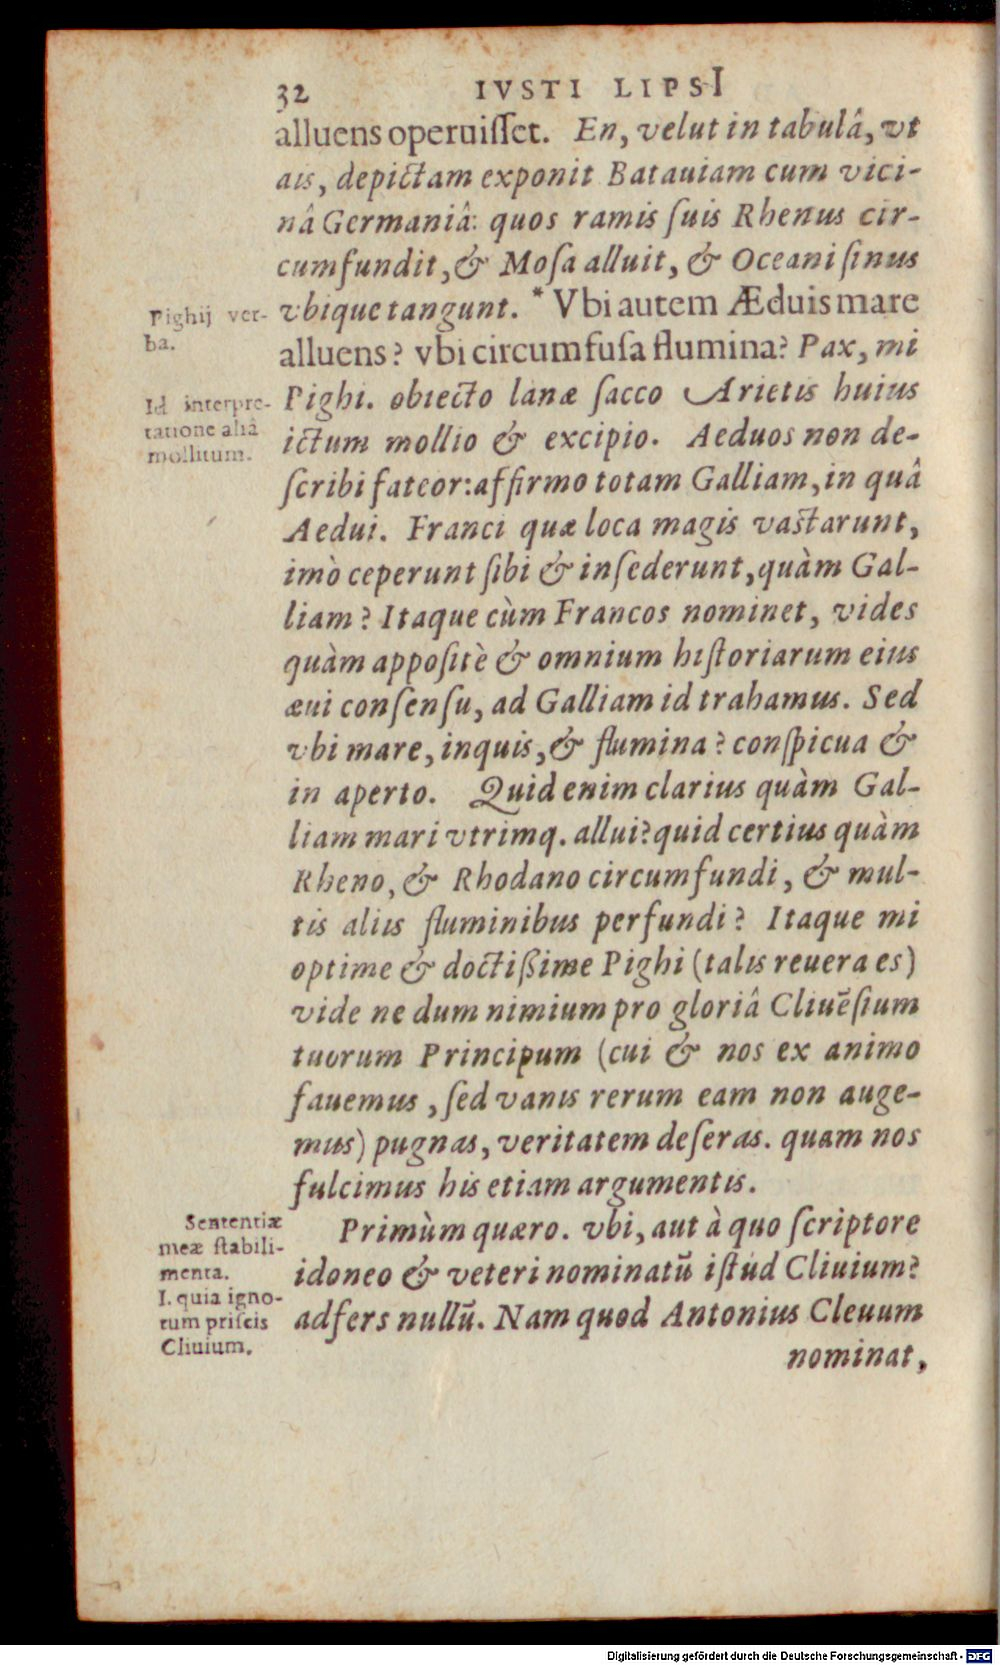 32 IVSTI LIPSI
alluens operuiſſet. En, velut in tabulâ, vt
ais, depictam exponit Batauiam cum vici-
nâ Germaniâ: quos ramis ſuis Rhenus cir-
cumfundit, & Moſa alluit, & Oceani ſinus
vbique tangunt. * Vbi autem Æduis mare
alluens? vbi circumfuſa flumina? Pax, mi
Pighi. obiecto lanæ ſacco Arietis huius
ictum mollio & excipio. Aeduos non de-
ſcribi fateor: affirmo totam Galliam, in quâ
Aedui. Franci quæ loca magis vastarunt,
imò ceperunt ſibi & inſederunt, quàm Gal-
liam? Itaque cùm Francos nominet, vides
quàm appoſitè & omnium hiſtoriarum eius
æui conſenſu, ad Galliam id trahamus. Sed
vbi mare, inquis, & flumina? conſpicua &
in aperto. Quid enim clarius quàm Gal-
liam mari vtrimq. allui? quid certius quàm
Rheno, & Rhodano circumfundi, & mul-
tis aliis fluminibus perfundi? Itaque mi
optime & doctißime Pighi (talis reuera es)
vide ne dum nimium pro gloriâ Cliuēſium
tuorum Principum (cui & nos ex animo
fauemus, ſed vanis rerum eam non auge-
mus) pugnas, veritatem deſeras. quam nos
fulcimus his etiam argumentis.
Primùm quæro. vbi, aut à quo ſcriptore
idoneo & veteri nominatū iſtud Cliuium?
adfers nullū. Nam quod Antonius Cleuum
nominat,
Pighij ver-
ba.
Id interpre-
tatione aliâ
mollitum.
Sententiæ
meæ ſtabili-
menta.
I. quia igno-
tum priſcis
Cliuium.
Digitalisierung gefördert durch die Deutsche Forschungsgemeinschaft - DFG